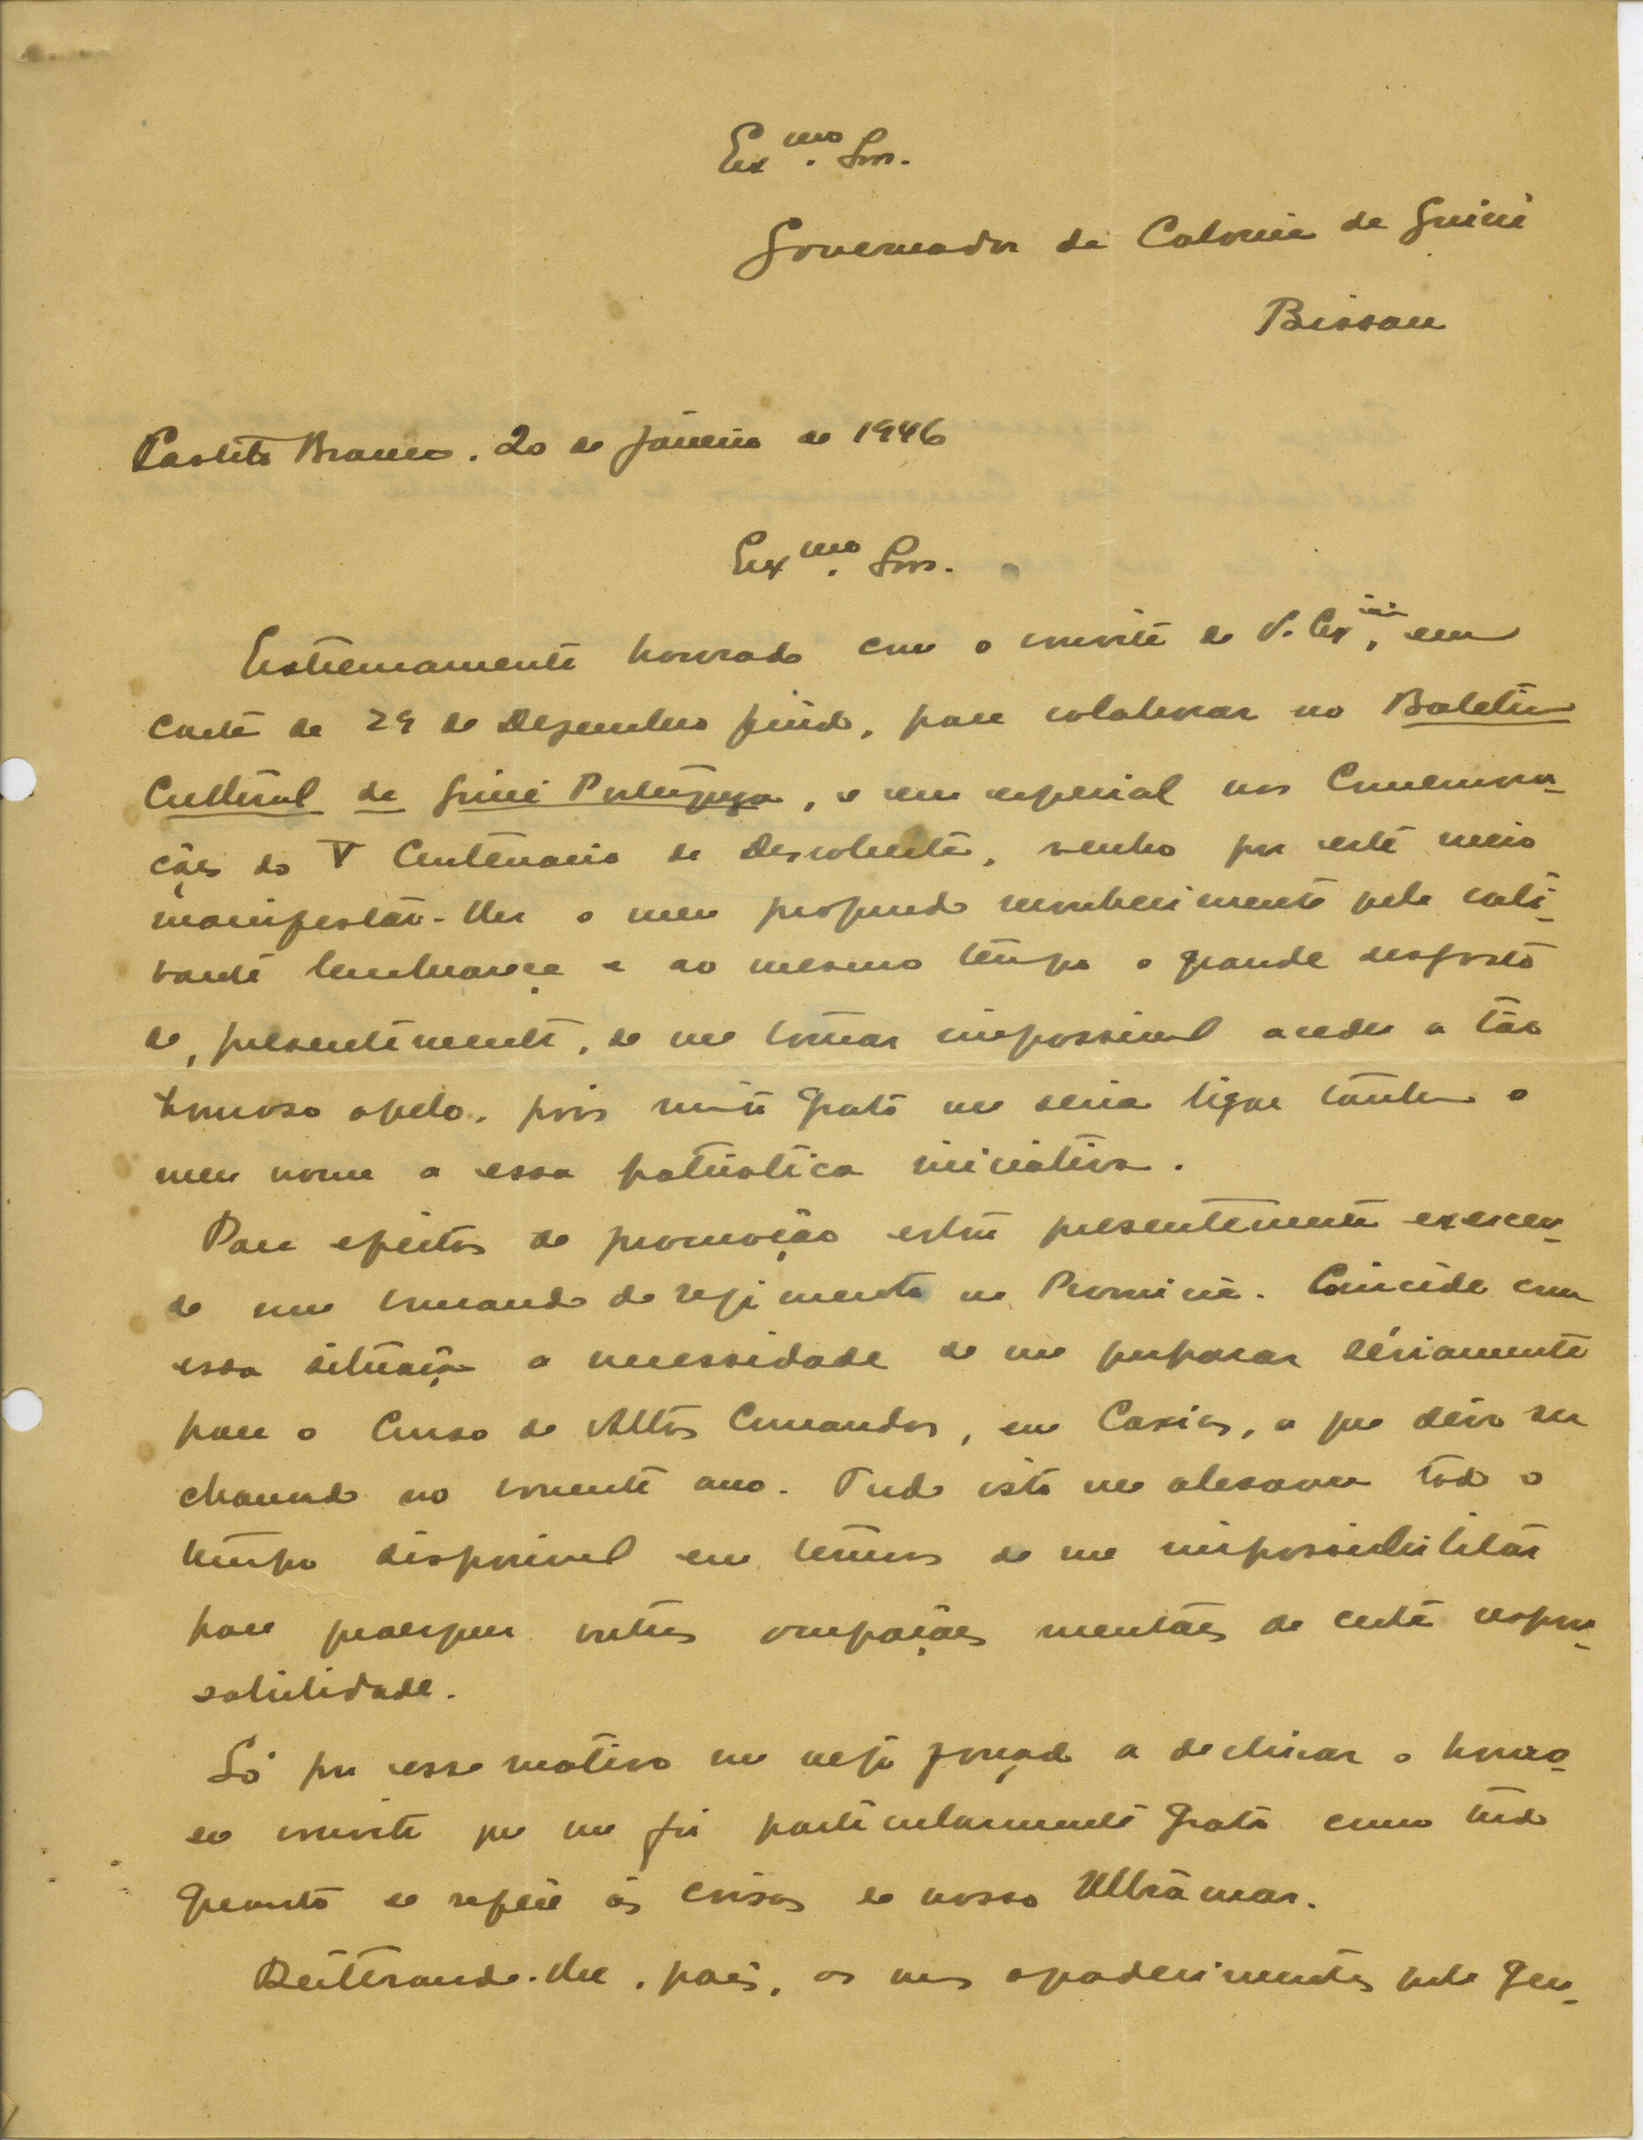 Ex.mo Snr.
Governador da Colonia da Guiné
Bissau
Castelo Branco. 20 de Janeiro de 1946
Ex.mo Snr.
Extremamente honrado com o convite de V. Ex.cia, em
carta de 29 de Dezembro findo, para colaborar no Boletim
Cultural da Guiné Portuguesa, e em especial nas Comemora-
ções do V Centenario da Descoberta, venho por este meio
manifestar-lhe o meu profundo reconhecimento pela cati-
vante lembrança e ao mesmo tempo o grande desgosto
de, presentemente, se me tornar impossivel aceder a tão
honroso apelo, pois muito grato me seria ligar tambem o
meu nome a essa patriotica iniciativa.
Para efeitos de promoção estou presentemente exercen-
do um comando de regimento na Provincia. Coincide com
essa situação a necessidade de me preparar sériamente
para o Curso de Altos Comandos, em Caxias, a que devo ser
chamado no corrente ano. Tudo isto me absorve todo o
tempo disponivel em termos de me impossibilitar
para quaisquer outras ocupações mentais de certa respon-
sabilidade.
Só por esse motivo me vejo forçado a declinar o honro-
so convite que me foi particularmente grato como tudo
quanto se refere ás coisas do nosso Ultramar.
Reiterando-lhe, pois, os meus agradecimentos pela gen-